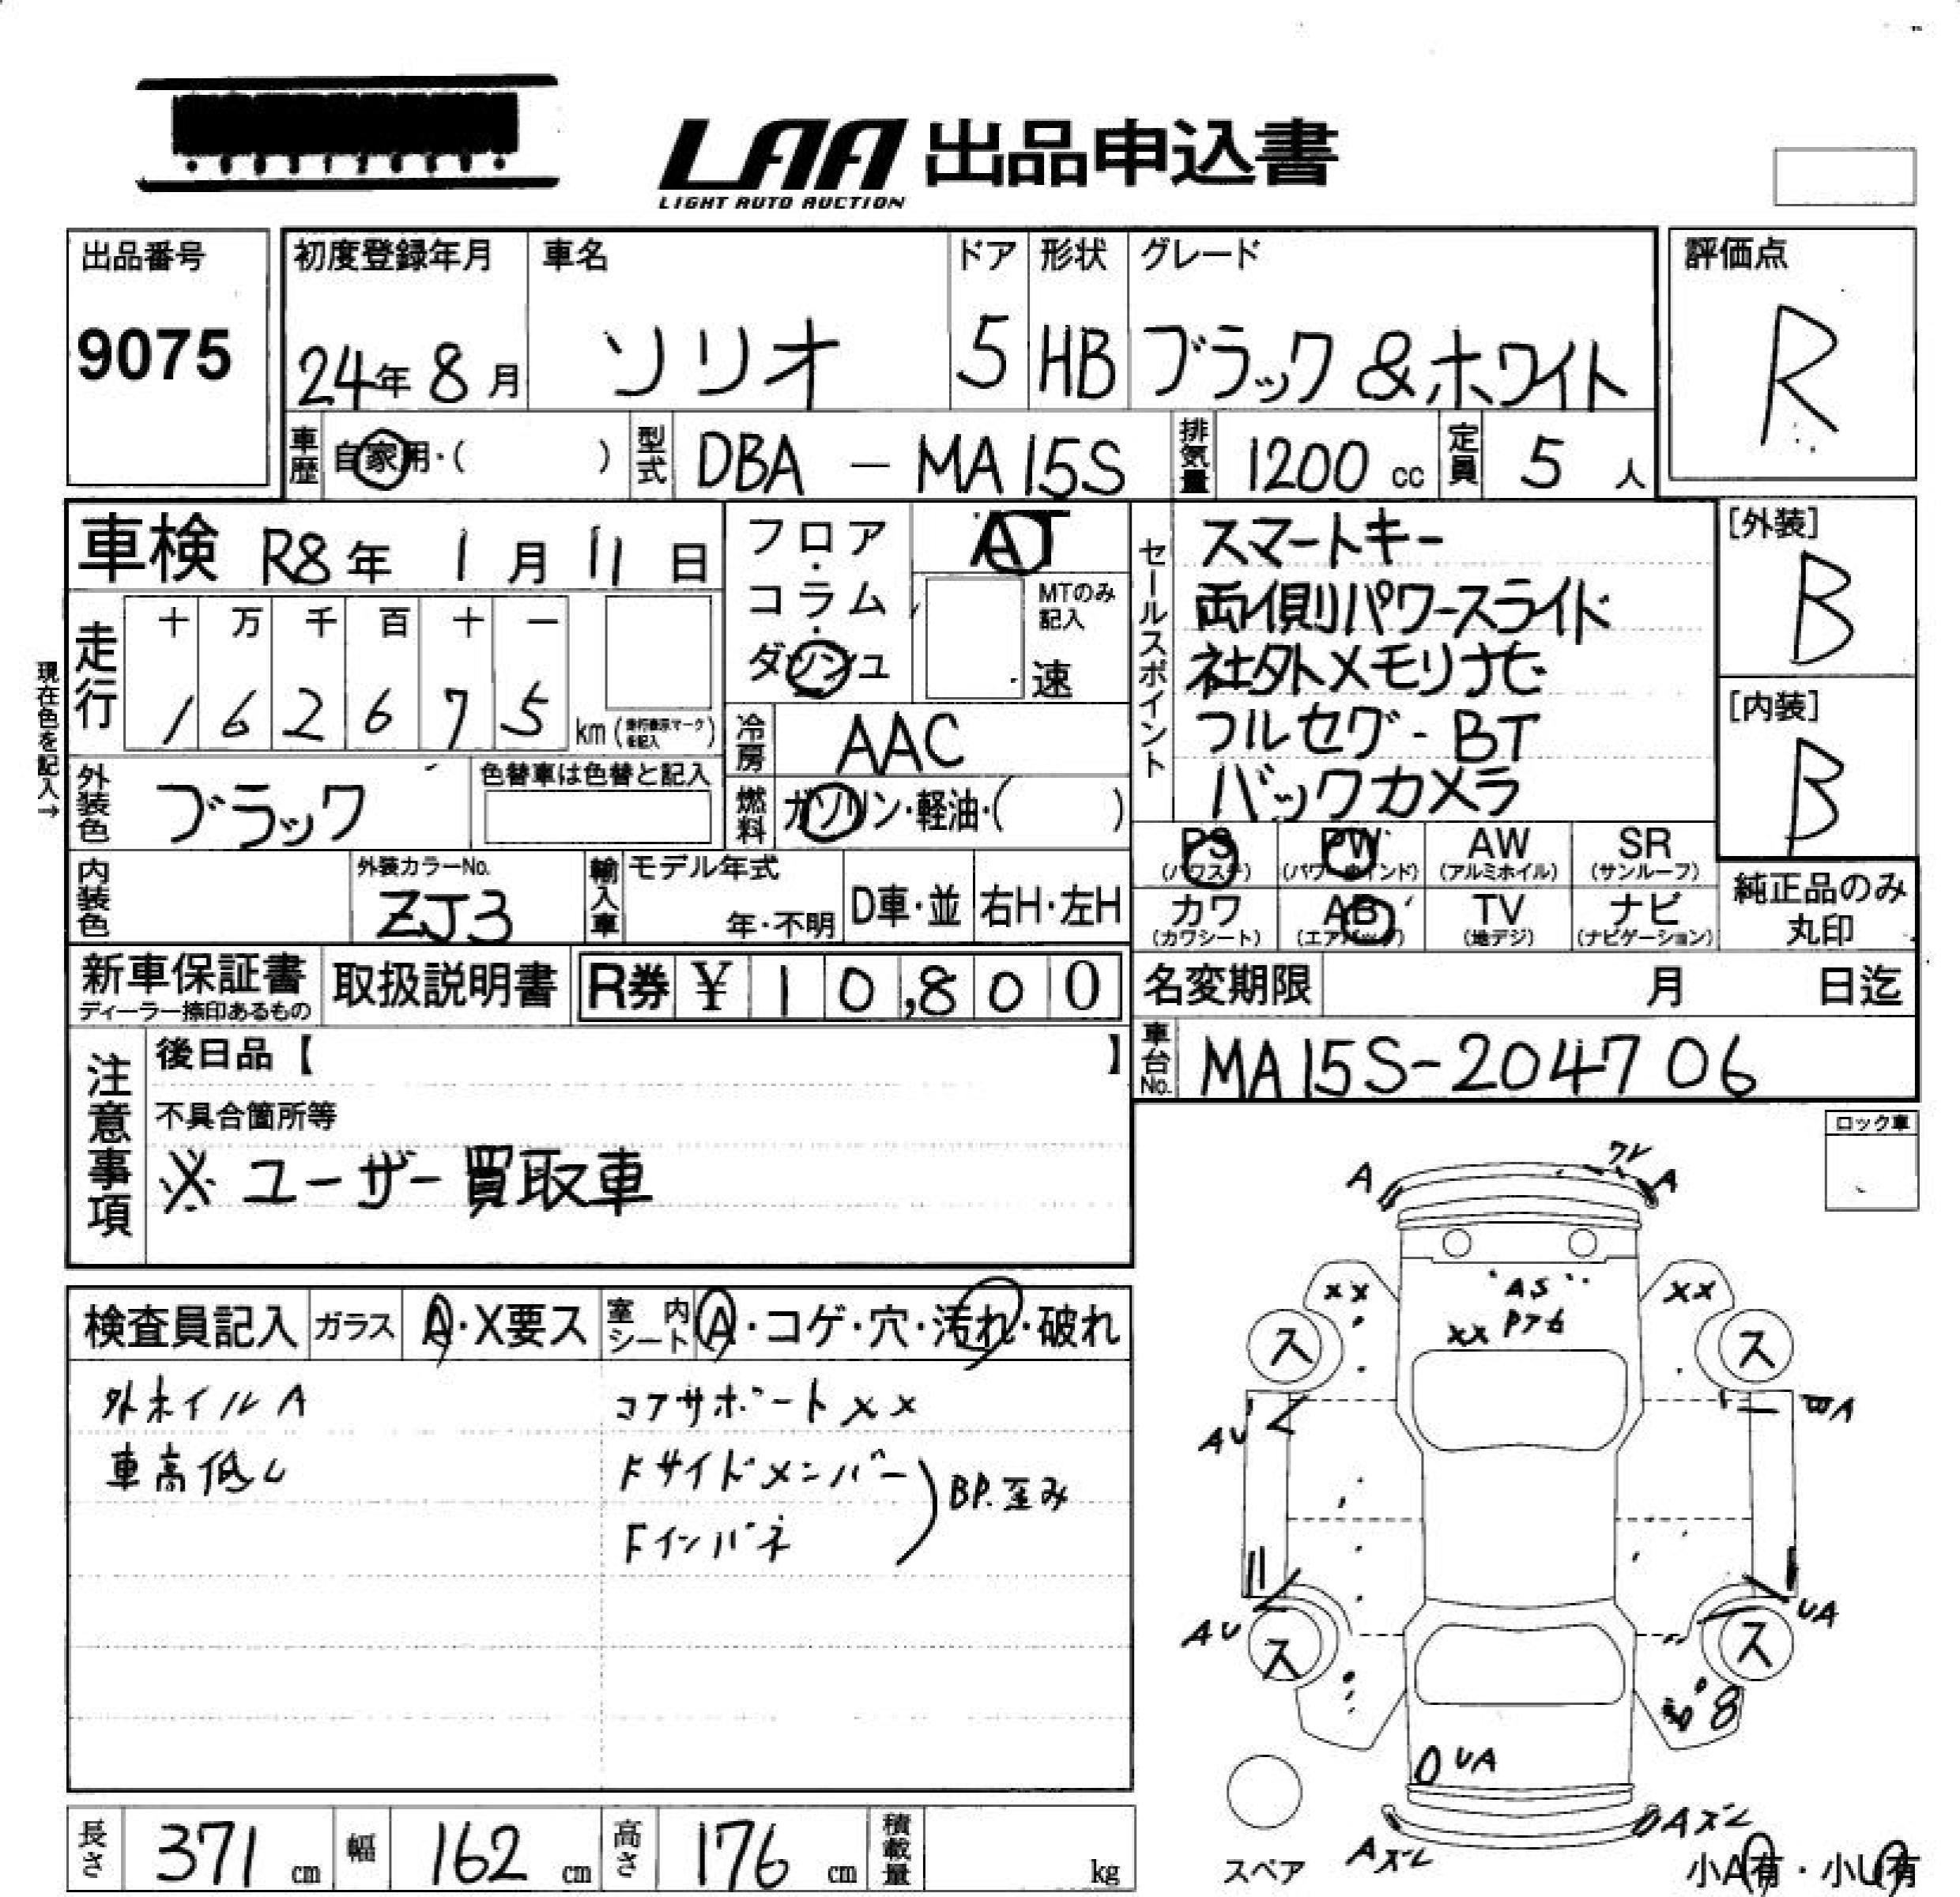 LAA 出品申込書
LIGHT AUTO AUCTION
出品番号 初度登録年月 車名 ドア 形状 グレード 評価点
9075 24年 8月 ソリオ 5 HB ブラック&ホワイト R
車歴 自家用・( ) 型式 DBA - MA15S 排気量 1200 cc 定員 5 人
車検 R8年 1月 11日
フロア・コラム・ダッシュ AT
MTのみ記入 速
セールスポイント
スマートキー
両側パワースライド
社外メモリナビ
フルセグ・BT
バックカメラ
[外装]
B
[内装]
B
現在色を記入→
走行 十 万 千 百 十 一
1 6 2 6 7 5 km
冷房 AAC
外装色 ブラック 色替車は色替と記入
燃料 ガソリン・軽油・( )
PS PW AW SR
(パワステ) (パワーウインド) (アルミホイル) (サンルーフ)
カワ AB TV ナビ
(カワシート) (エアバック) (地デジ) (ナビゲーション)
純正品のみ
丸印
内装色 外装カラーNo. ZJ3 輸入車 モデル年式 年・不明 D車・並 右H・左H
新車保証書 取扱説明書 R券 ¥ 10,800
ディーラー捺印あるもの
名変期限 月 日迄
車台No. MA15S-204706
注意事項
後日品【 】
不具合箇所等
※ユーザー買取車
ロック車
検査員記入 ガラス A・X要ス 室内シート A・コゲ・穴・汚れ・破れ
外ホイルA コアサポートXX
車高低し Fサイドメンバー
Fインパネ
BP.歪み
A ワレ A
XX AS XX
XX P76
ス ス
AU
AU UA
ス ス
UA
スペア
Aズレ
Aズレ
小A有・小U有
長さ 371 cm 幅 162 cm 高さ 176 cm 積載量 kg